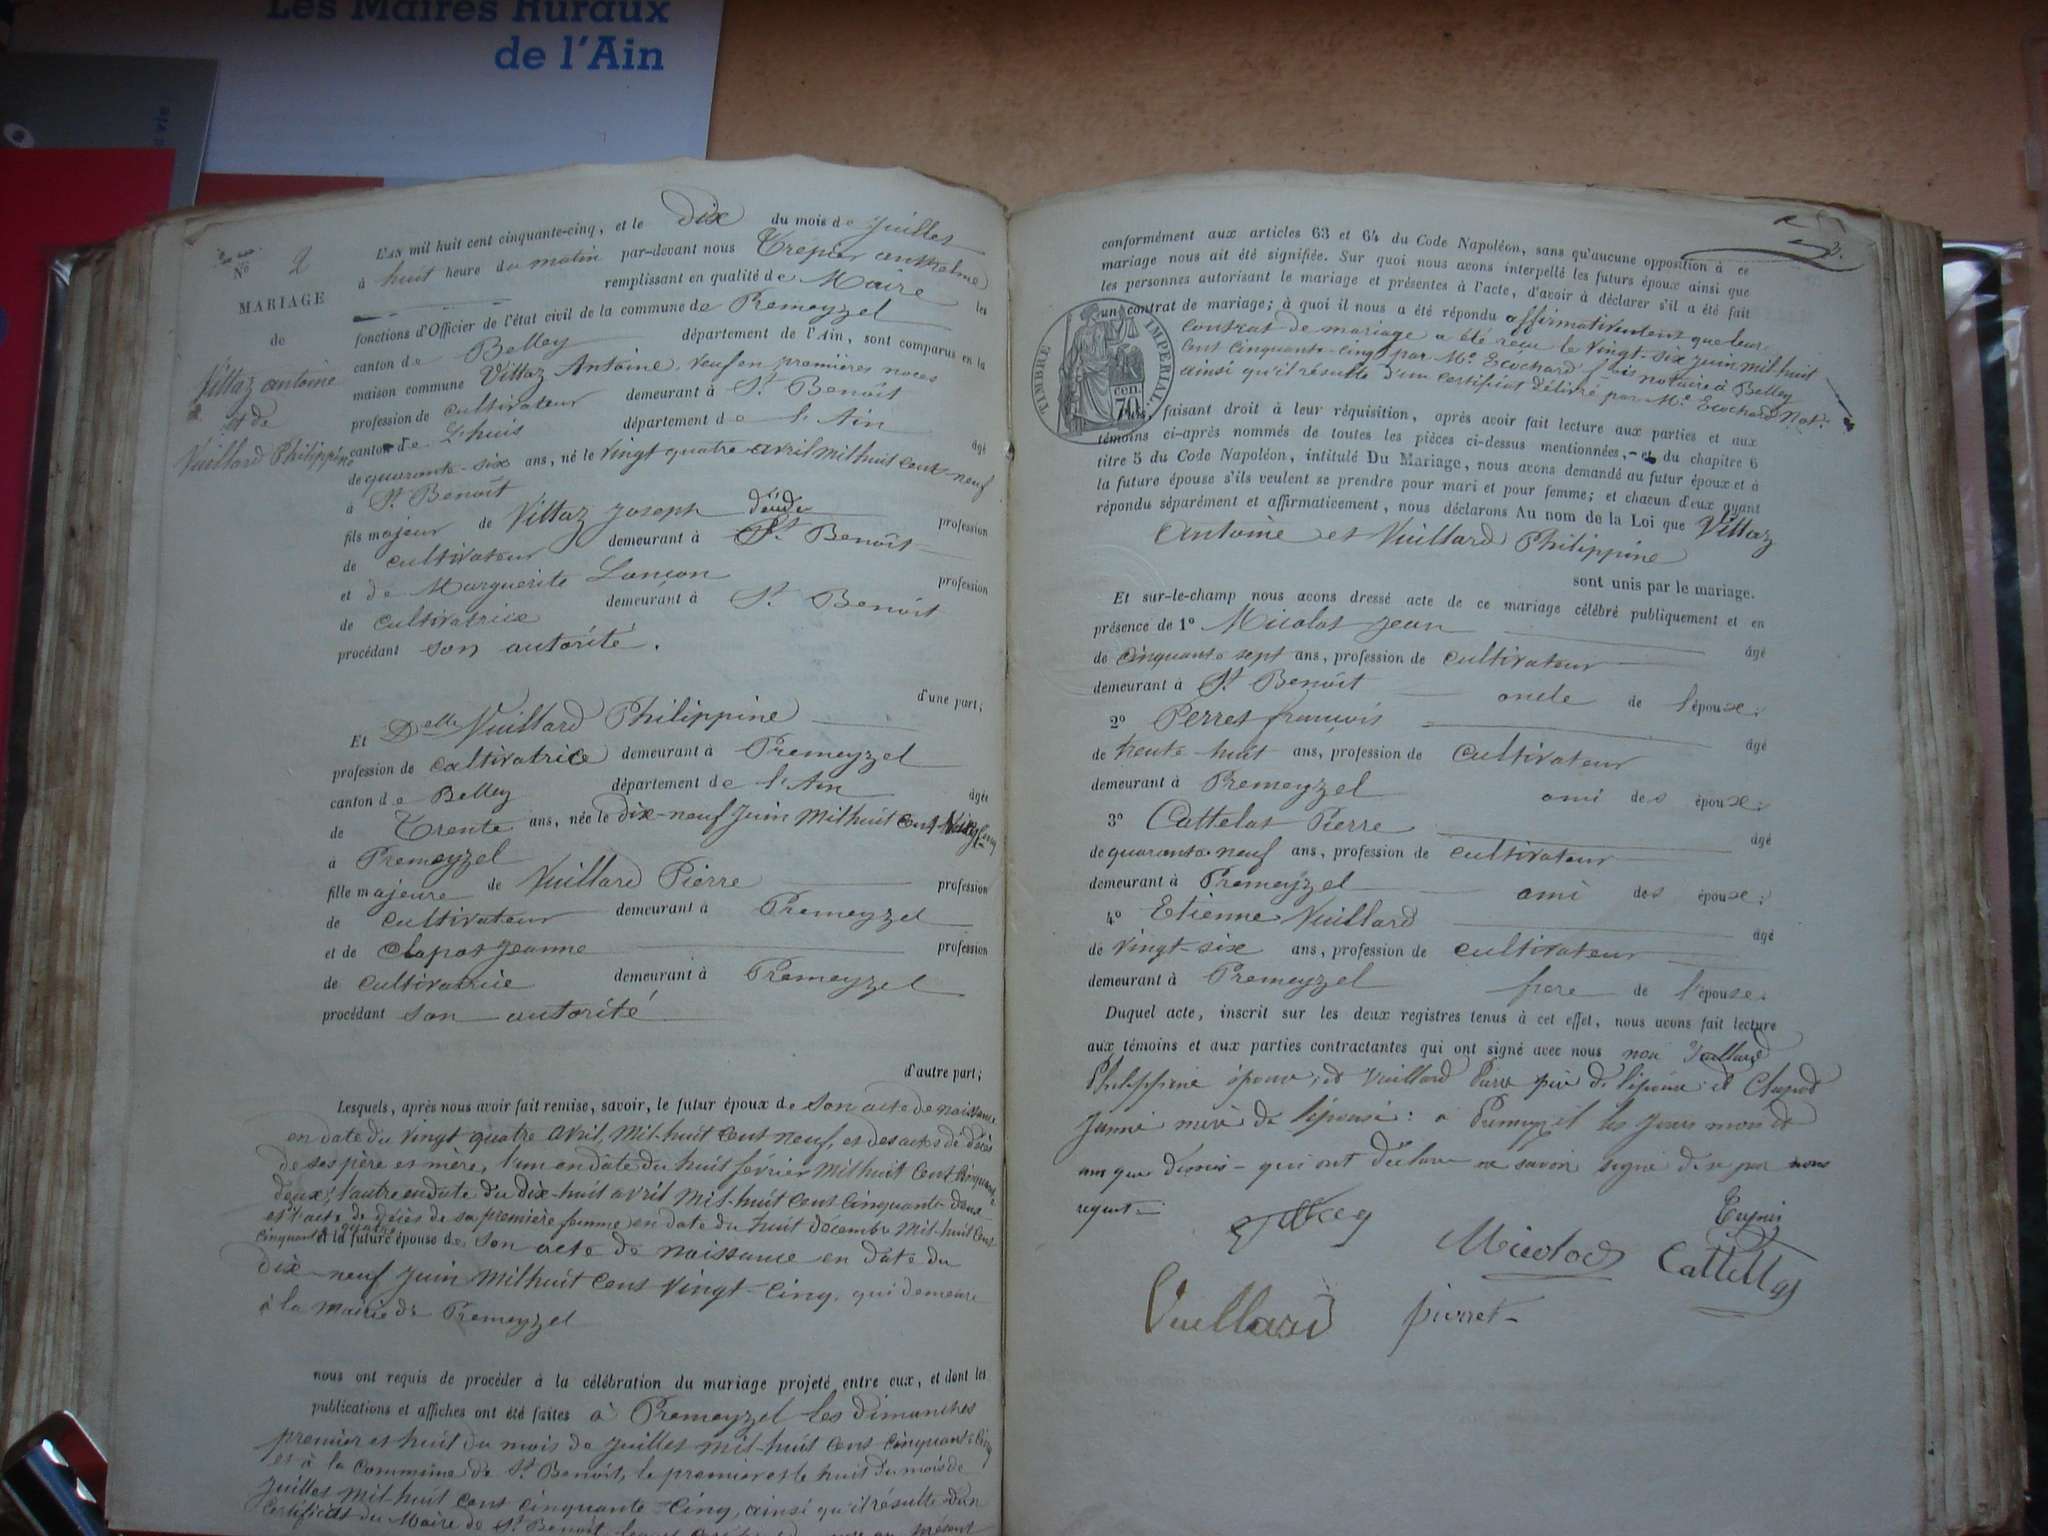 Les Maires Ruraux
de l'Ain
vie
Nº 2
MARIAGE
de
Vittaz antoine
et de
Vuillard Philippine
L'AN mil huit cent cinquante-cinq, et le dix du mois de Juillet
à huit heure du matin par-devant nous Trepier anthelme
remplissant en qualité de Maire les
fonctions d'Officier de l'état civil de la commune de Premeyzel
canton de Belley département de l'Ain, sont comparus en la
maison commune Vittaz Antoine, veuf en premières noces
profession de cultivateur demeurant à St Benoît
canton de L'huis département de l'Ain âgé
de quarante-six ans, né le vingt quatre avril mil huit cent neuf
à St Benoît
fils majeur de Vittaz Joseph décédé profession
de cultivateur demeurant à St Benoît
et de Marguerite Lançon profession
de cultivatrice demeurant à St Benoît
procédant son autorité.
d'une part;
Et Delle Vuillard Philippine
profession de cultivatrice demeurant à Premeyzel
canton de Belley département de l'Ain âgée
de Trente ans, née le dix-neuf Juin mil huit cent vingt cinq
à Premeyzel
fille majeure de Vuillard Pierre profession
de cultivateur demeurant à Premeyzel
et de Clapot Jeanne profession
de cultivatrice demeurant à Premeyzel
procédant son autorité
d'autre part;
Lesquels, après nous avoir fait remise, savoir, le futur époux de son acte de naissance
en date du vingt quatre avril, mil-huit cent neuf, et des actes de décès
de ses père et mère, l'un en date du huit février mil huit cent cinquante
deux, l'autre en date du dix-huit avril mil-huit cent cinquante-deux
et l'acte de décès de sa première femme en date du huit decembre mil-huit cent
cinquante quatre et la future épouse de son acte de naissance en date du
dix-neuf Juin mil huit cent vingt-cinq, qui demeure
à la mairie de Premeyzel
nous ont requis de procéder à la célébration du mariage projeté entre eux, et dont les
publications et affiches ont été faites à Premeyzel les dimanches
premier et huit du mois de Juillet mil-huit cent cinquante cinq
et à la commune de St Benoît, le premier et le huit du mois de
Juillet mil-huit cent cinquante-cinq, ainsi qu'il résulte d'un
certificat du Maire de St Benoît présent
2.
conformément aux articles 63 et 64 du Code Napoléon, sans qu'aucune opposition à ce
mariage nous ait été signifiée. Sur quoi nous avons interpellé les futurs époux ainsi que
les personnes autorisant le mariage et présentes à l'acte, d'avoir à déclarer s'il a été fait
un contrat de mariage; à quoi il nous a été répondu affirmativement que leur
contrat de mariage a été reçu le vingt-six juin mil huit
cent cinquante-cinq par Me Ecochard notaire à Belley
ainsi qu'il résulte d'un certificat délivré par Me Ecochard Not.
TIMBRE IMPERIAL
70 cen
faisant droit à leur réquisition, après avoir fait lecture aux parties et aux
témoins ci-après nommés de toutes les pièces ci-dessus mentionnées, et du chapitre 6
titre 5 du Code Napoléon, intitulé Du Mariage, nous avons demandé au futur époux et à
la future épouse s'ils veulent se prendre pour mari et pour femme; et chacun d'eux ayant
répondu séparément et affirmativement, nous déclarons Au nom de la Loi que Vittaz
Antoine et Vuillard Philippine
sont unis par le mariage.
Et sur-le-champ nous avons dressé acte de ce mariage célébré publiquement et en
présence de 1º Nicolas Jean âgé
de cinquante sept ans, profession de cultivateur
demeurant à St Benoît oncle de l'époux;
2º Perret françois âgé
de trente huit ans, profession de cultivateur
demeurant à Premeyzel ami des époux;
3º Cattelas Pierre âgé
de quarante-neuf ans, profession de cultivateur
demeurant à Premeyzel ami des époux;
4º Etienne Vuillard âgé
de vingt-six ans, profession de cultivateur
demeurant à Premeyzel frere de l'épouse.
Duquel acte, inscrit sur les deux registres tenus à cet effet, nous avons fait lecture
aux témoins et aux parties contractantes qui ont signé avec nous non Vuillard
Philippine épouse, et Vuillard Pierre père de l'épouse et Clapot
Jeanne mère de l'épouse: à Premeyzel les jours mois et
an que dessus - qui ont déclaré ne savoir signé de ce par nous
requit
Nicolas
Trepier
Cattellas
Vuillard
pierret